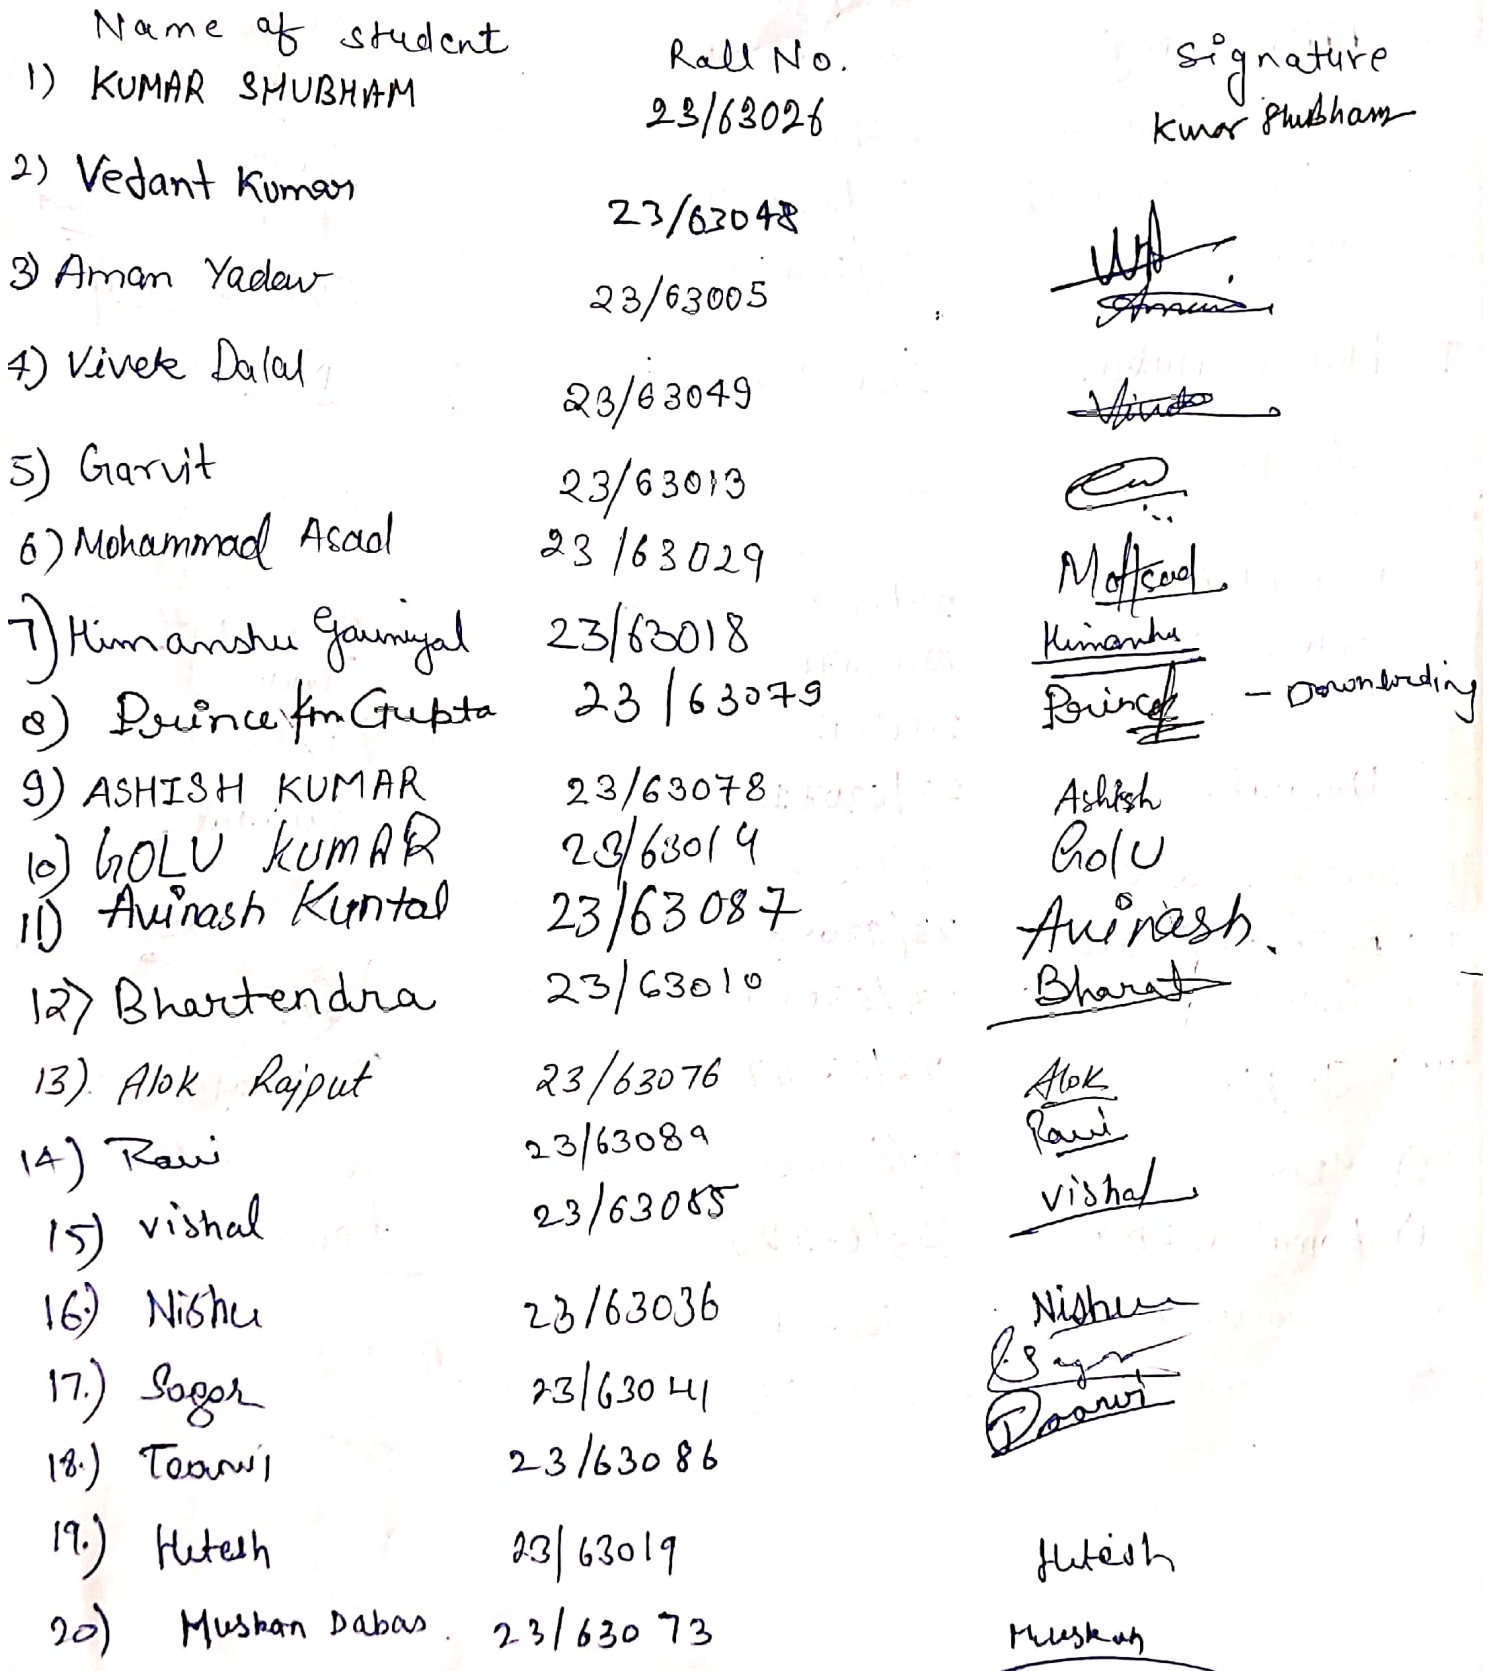 Name of student Roll No. Signature
1) KUMAR SHUBHAM 23/63026 Kumar Shubham
2) Vedant Kumar 23/63048
3) Aman Yadav 23/63005 Aman
4) Vivek Dalal 23/63049 Vivek
5) Garvit 23/63013
6) Mohammad Asad 23/63029 MoAsad
7) Himanshu Gauniyal 23/63018 Himanshu
8) Prince Km Gupta 23/63079 Prince -
9) ASHISH KUMAR 23/63078 Ashish
10) GOLU KUMAR 23/63014 Golu
11) Avinash Kuntal 23/63087 Avinash.
12) Bhartendra 23/63010 Bharat
13). Alok Rajput 23/63076 Alok
14) Ravi 23/63089 Ravi
15) vishal 23/63085 vishal
16.) Nishu 23/63036 Nishu
17.) Sagar 23/63041 Sagar
18.) 23/63086
19.) Hitesh 23/63019 Hitesh
20) Muskan Dabas. 23/63073 Muskan